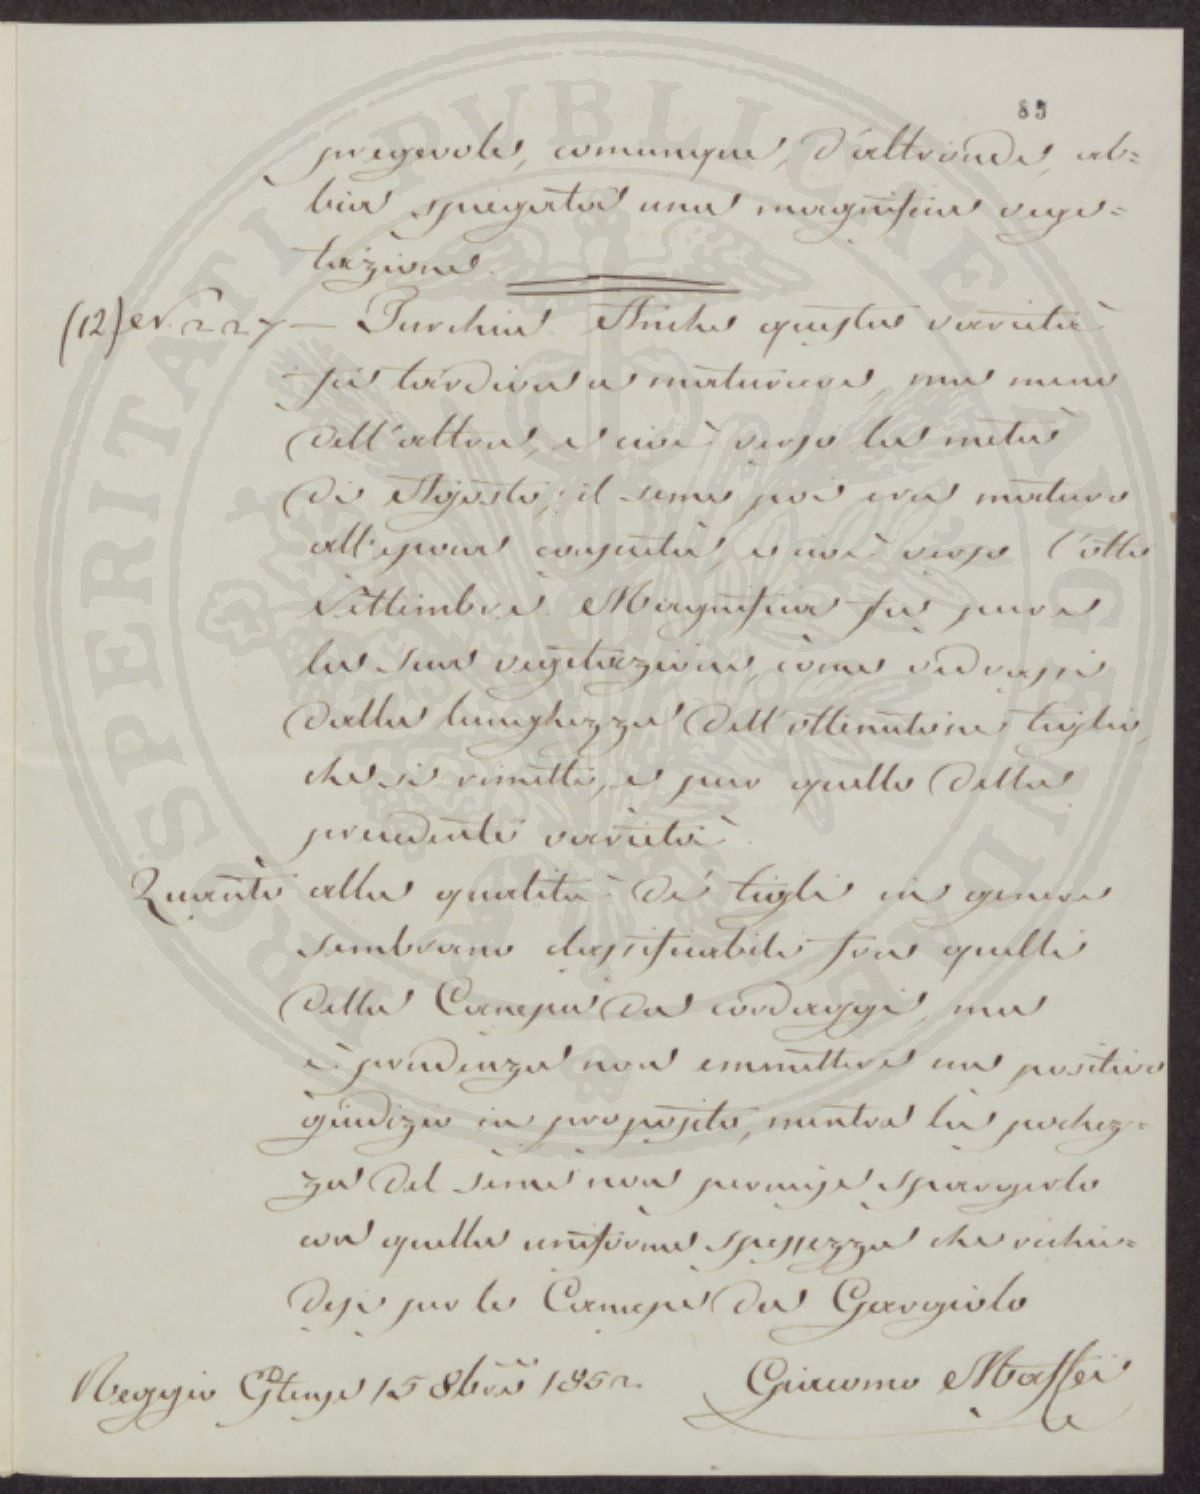 85
pregevole, comunque, d'altronde, ab=
bia spiegata una magnifica vege=
tazione.
(12) N. 227 — Turchia. Anche questa varietà
fù tardiva a maturare, ma meno
dell'altra, e cioè verso la metà
di Agosto; il seme poi era maturo
all'epoca consueta, e cioè verso l'otto
Settembre. Magnifica fu pure
la sua vegetazione, come vedrassi
dalla lunghezza dell'ottenutone tiglio,
che si rimette, e pur quello della
precedente varietà.
Quanto alla qualità de' tigli in genere
sembrano classificabili fra quelli
della Canepa da cordaggi, ma
è prudenza non emmettere un positivo
giudizio in proposito, mentre la pochez=
za del seme non permise spargerlo
con quella uniforme spessezza che richie=
desi per le Canape da Gargiolo
Reggio 15 8bre 1852. Giacomo Maffei
PROSPERITATI PVBLICAE AVGENDAE